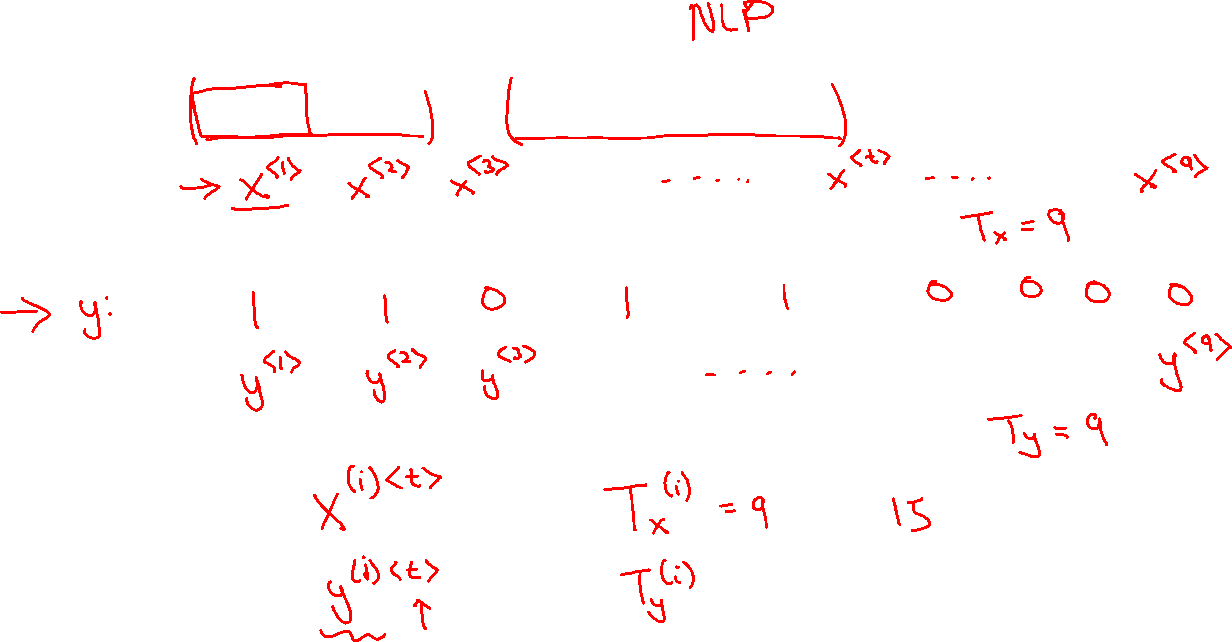 NLP
→ x<1> x<2> x<3> ..... x<t> ..... x<9>
Tx = 9
→ y: 1 1 0 1 1 0 0 0 0
y<1> y<2> y<3> ..... y<9>
Ty = 9
X(i)<t> Tx(i) = 9 15
y(i)<t> Ty(i)